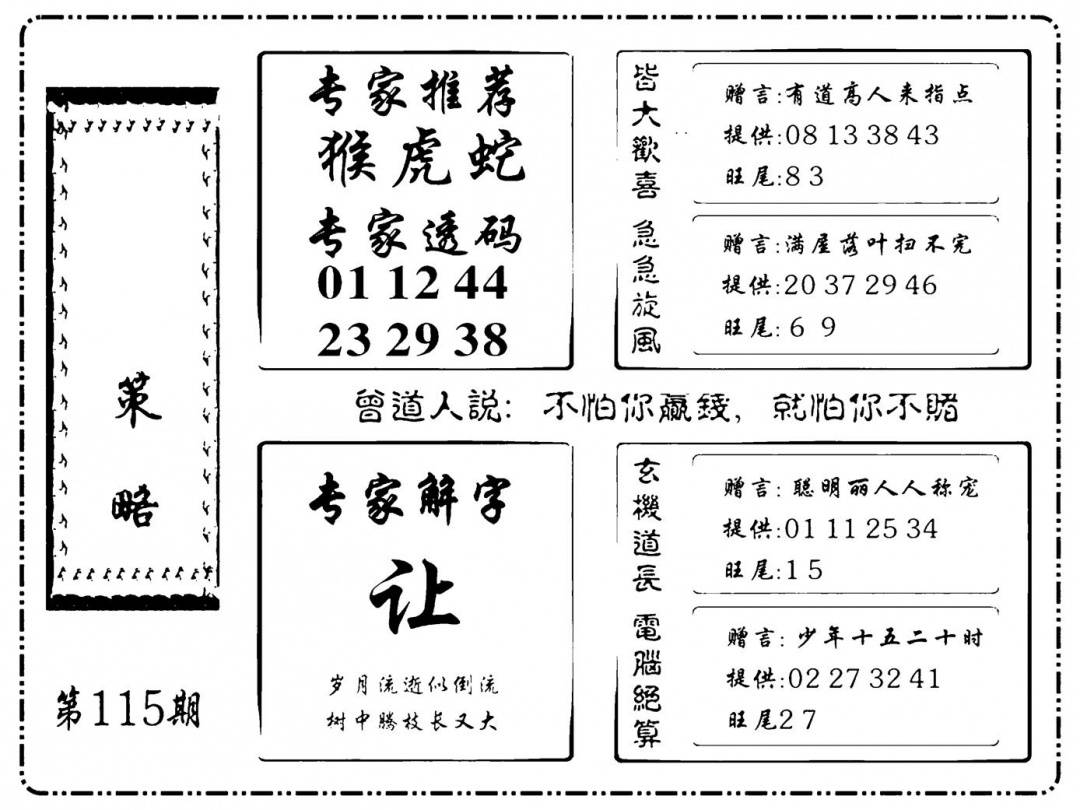 策略
第115期
专家推荐
猴虎蛇
专家透码
01 12 44
23 29 38
皆大歡喜
赠言:有道高人来指点
提供:08 13 38 43
旺尾:8 3
急急旋風
赠言:满屋落叶扫不完
提供:20 37 29 46
旺尾:6 9
曾道人説: 不怕你赢錢, 就怕你不賭
专家解字
让
岁月流逝似倒流
树中腾枝长又大
玄機道長
赠言: 聪明丽人人称宠
提供:01 11 25 34
旺尾:1 5
電腦絕算
赠言: 少年十五二十时
提供:02 27 32 41
旺尾2 7